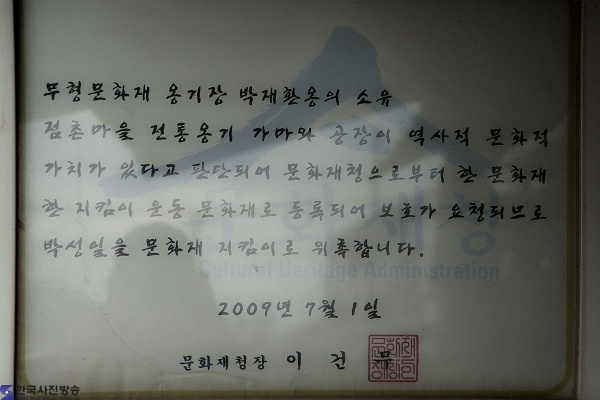 무형문화재 옹기장 박재환옹의 소유
점촌마을 전통옹기 가마와 공장이 역사적 문화적
가치가 있다고 판단되어 문화재청으로부터 한 문화재
한 지킴이 운동 문화재로 등록되어 보호가 요청되므로
박성일을 문화재 지킴이로 위촉합니다.
문화재청
Cultural Heritage Administration
2009년 7월 1일
문화재청장 이 건 무
한국사진방송